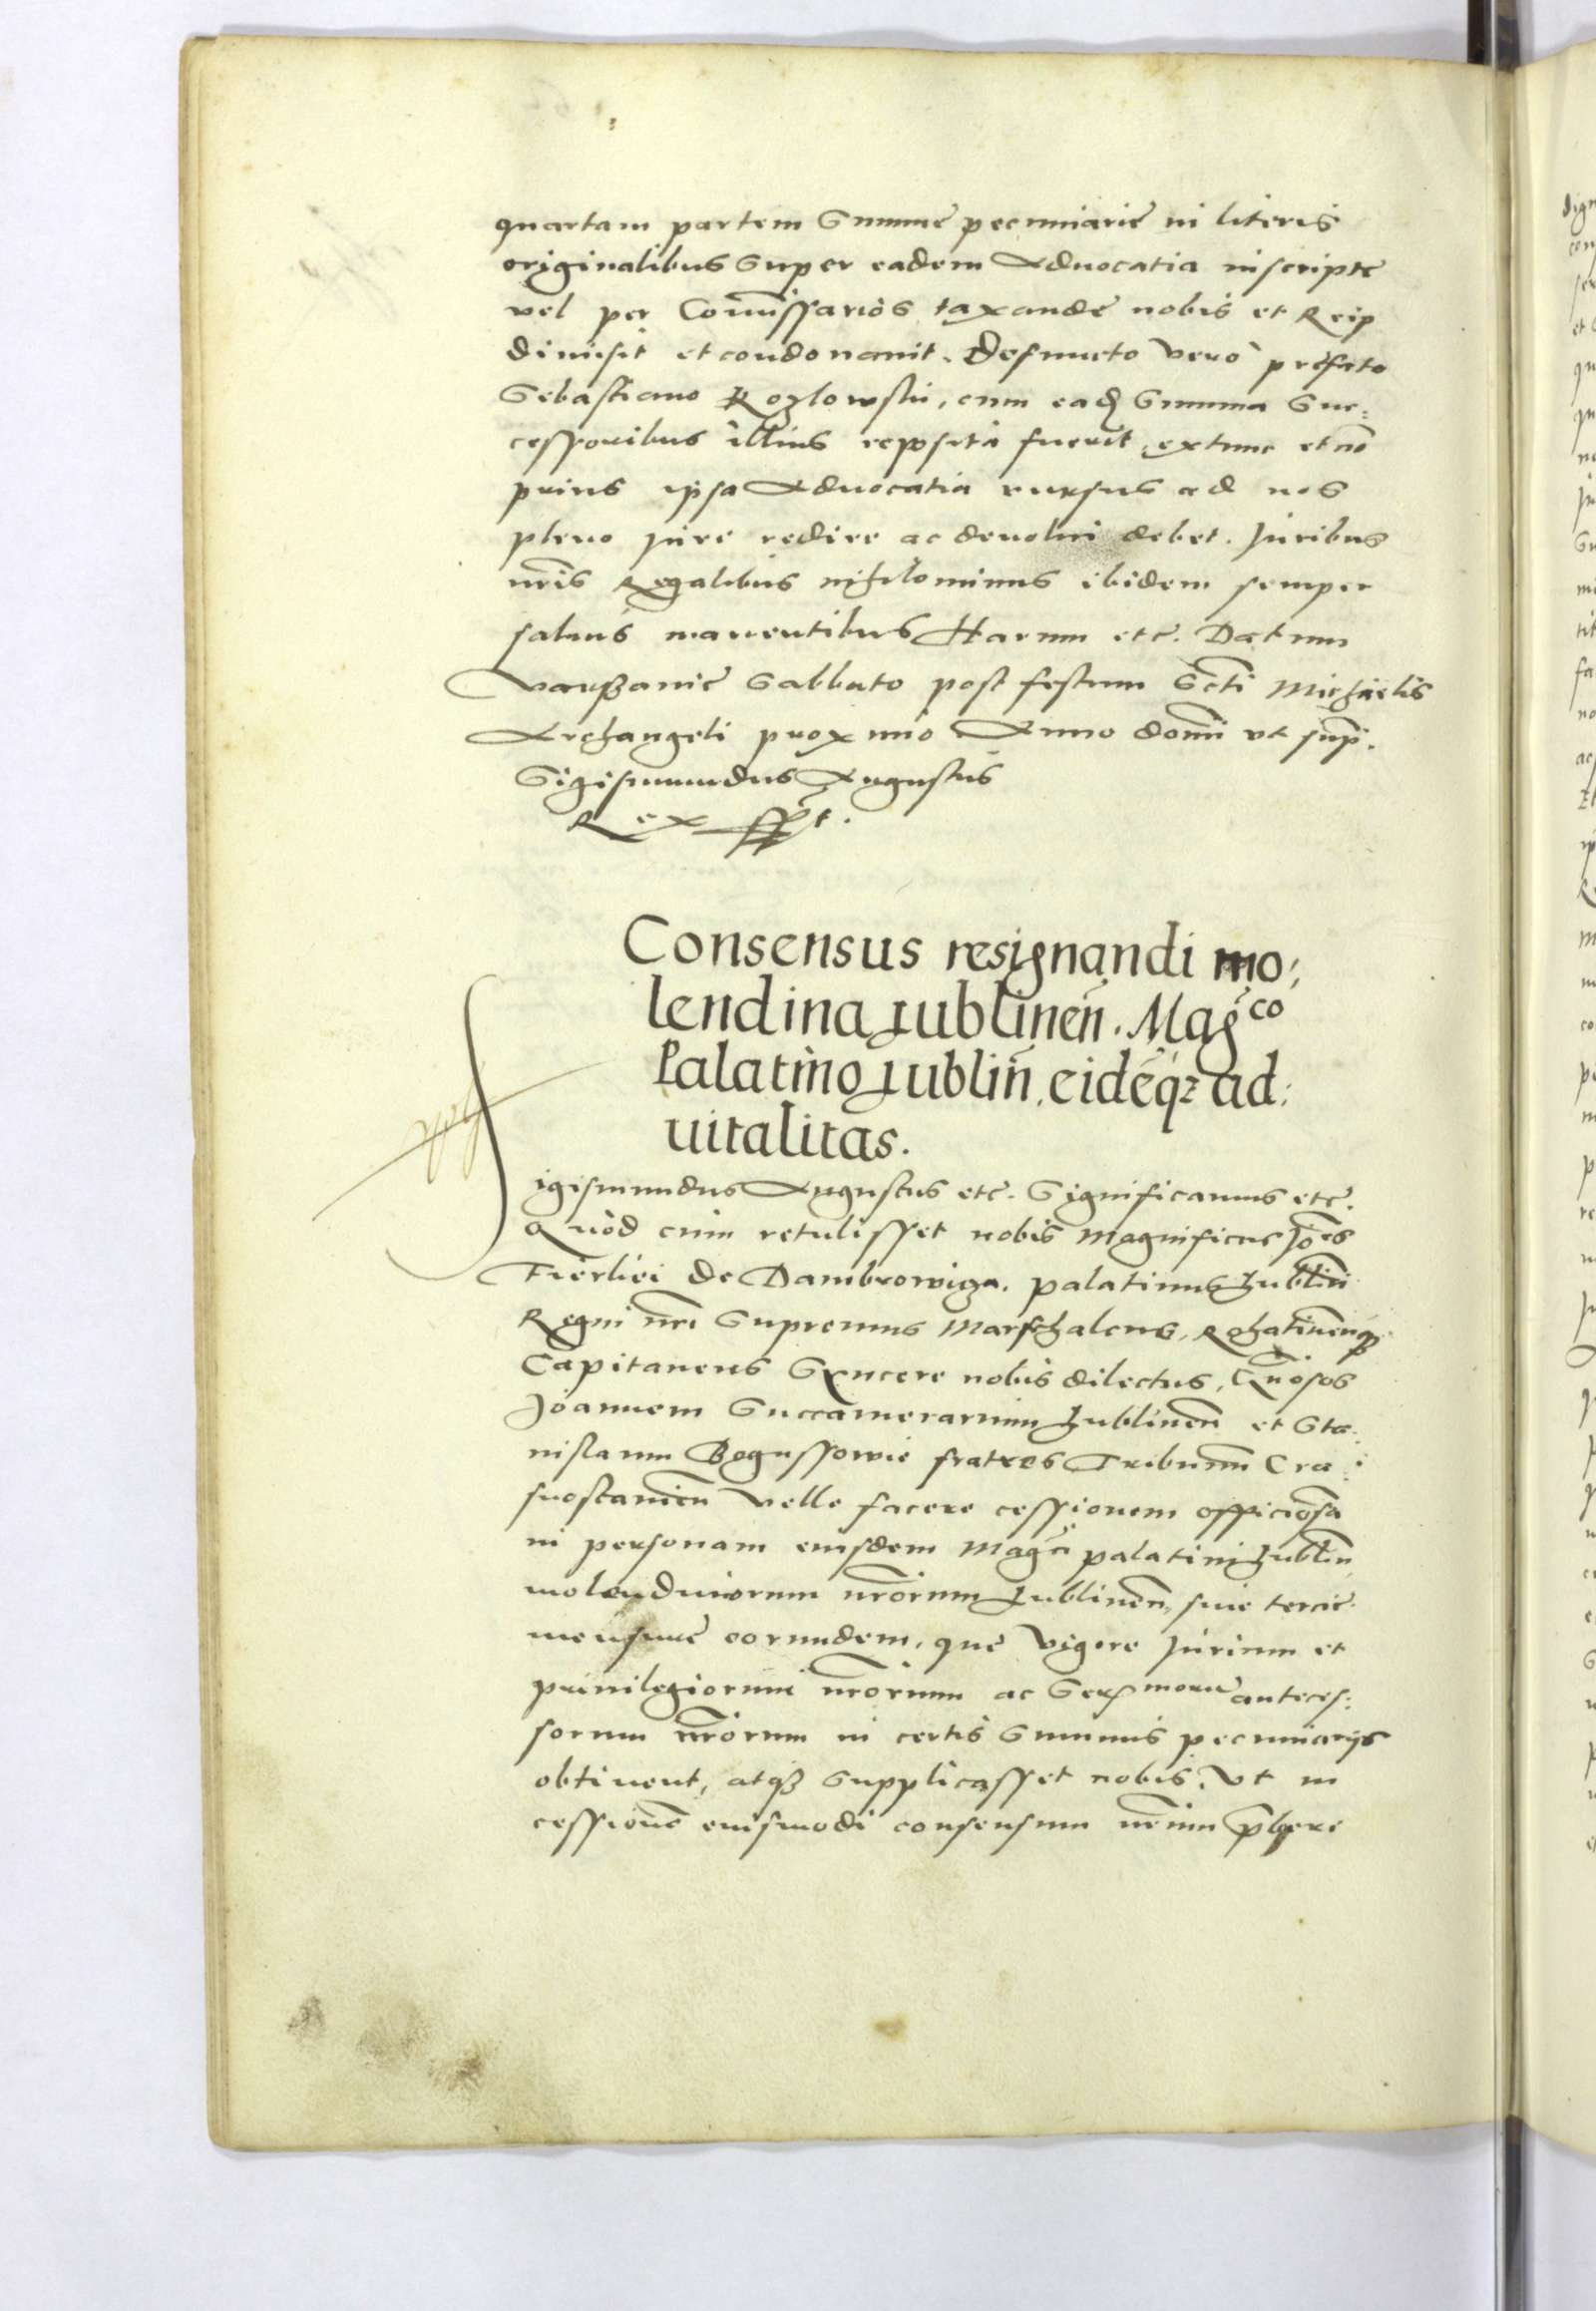 quartam partem Summe pecuniarie in literis
originalibus super eadem Advocatia inscripte
vel per Com̃issarios taxande nobis et Reip
dimisit et condonauit. Defuncto vero prefato
Sebastiano Kozlowski, cum ead Summa Suc:
cessoribus illius reposita fuerit, extunc et nõ
prius ipsa Aduocatia rursus ad nos
pleno jure redire ac deuolui debet. Juribus
nr̃is Regalibus nihilominus ibidem semper
saluis manentibus Harum etc. Datum
Varssauie Sabbato post festum Sc̃ti Michaelis
Archangeli proximo Anno domĩ vt sup̃.
Sigismundus Augustus
Rex sspt.
Consensus resignandi mo:
lendina Lublineñ. Mag̃co
Palatino Lubliñ. eidẽqz ad:
uitalitas.
Sigismundus Augustus etc. Significamus etc.
Quod cum retulisset nobis Magnificus Joẽs
Firliei de Dambrowiza. palatinus Lubliñ
Regni nr̃i Supremus Marschalcus, Rohatineñqz
Capitaneus Syncere nobis dilectus, Gñosos
Joannem Succamerarium Lublineñ et Sta:
nislaum Bogussowie fratres Tribunum Cra:
snostauieñ velle facere cessionem officiosã
in personam eiusdem Mag̃ci palatini Lubliñ,
molendinorum nr̃orum Lublineñ, siue tercie
mensure eorundem, que vigore jurium et
priuilegiorum nr̃orum ac Serᵐᵒʳᵘ̃ anteces:
sorum nr̃orum in certis Summis pecuniarijs
obtinent, atqz supplicasset nobis, vt in
cessionẽ eiusmodi consensum nr̃um p̃bere